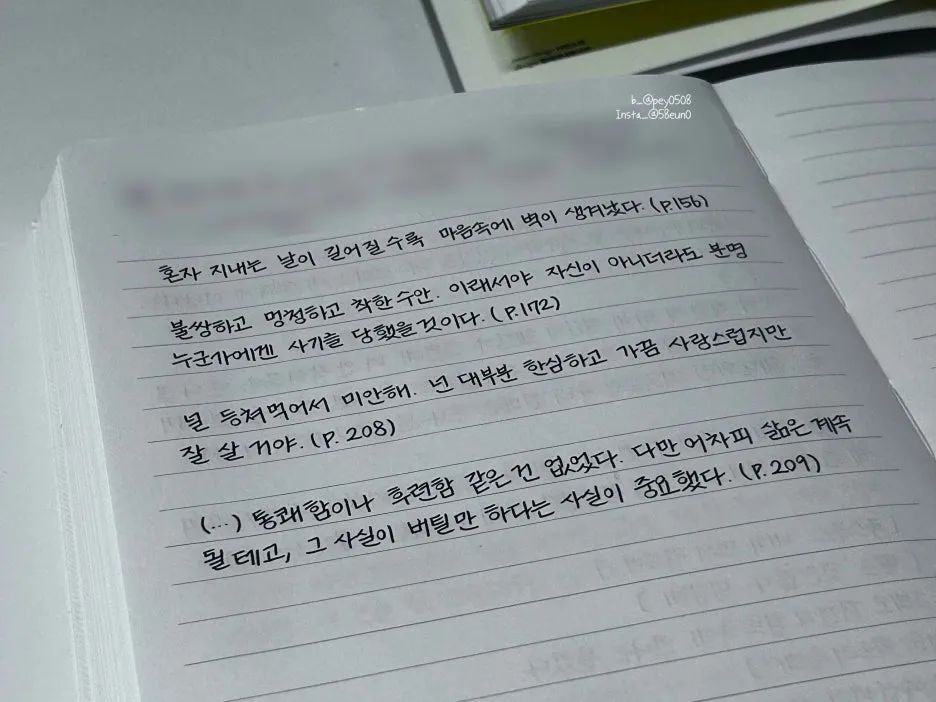 b_@pey0508
Insta_@58eun0
혼자 지내는 날이 길어질수록 마음속에 벽이 생겨났다. (P.156)
불쌍하고 멍청하고 착한 수안. 이래서야 자신이 아니더라도 분명
누군가에겐 사기를 당했을 것이다. (P.172)
널 등쳐먹어서 미안해. 넌 대부분 한심하고 가끔 사랑스럽지만
잘 살 거야. (P. 208)
(...) 통쾌함이나 후련함 같은 건 없었다. 다만 어차피 삶은 계속
될 테고, 그 사실이 버틸만 하다는 사실이 중요했다. (P.209)